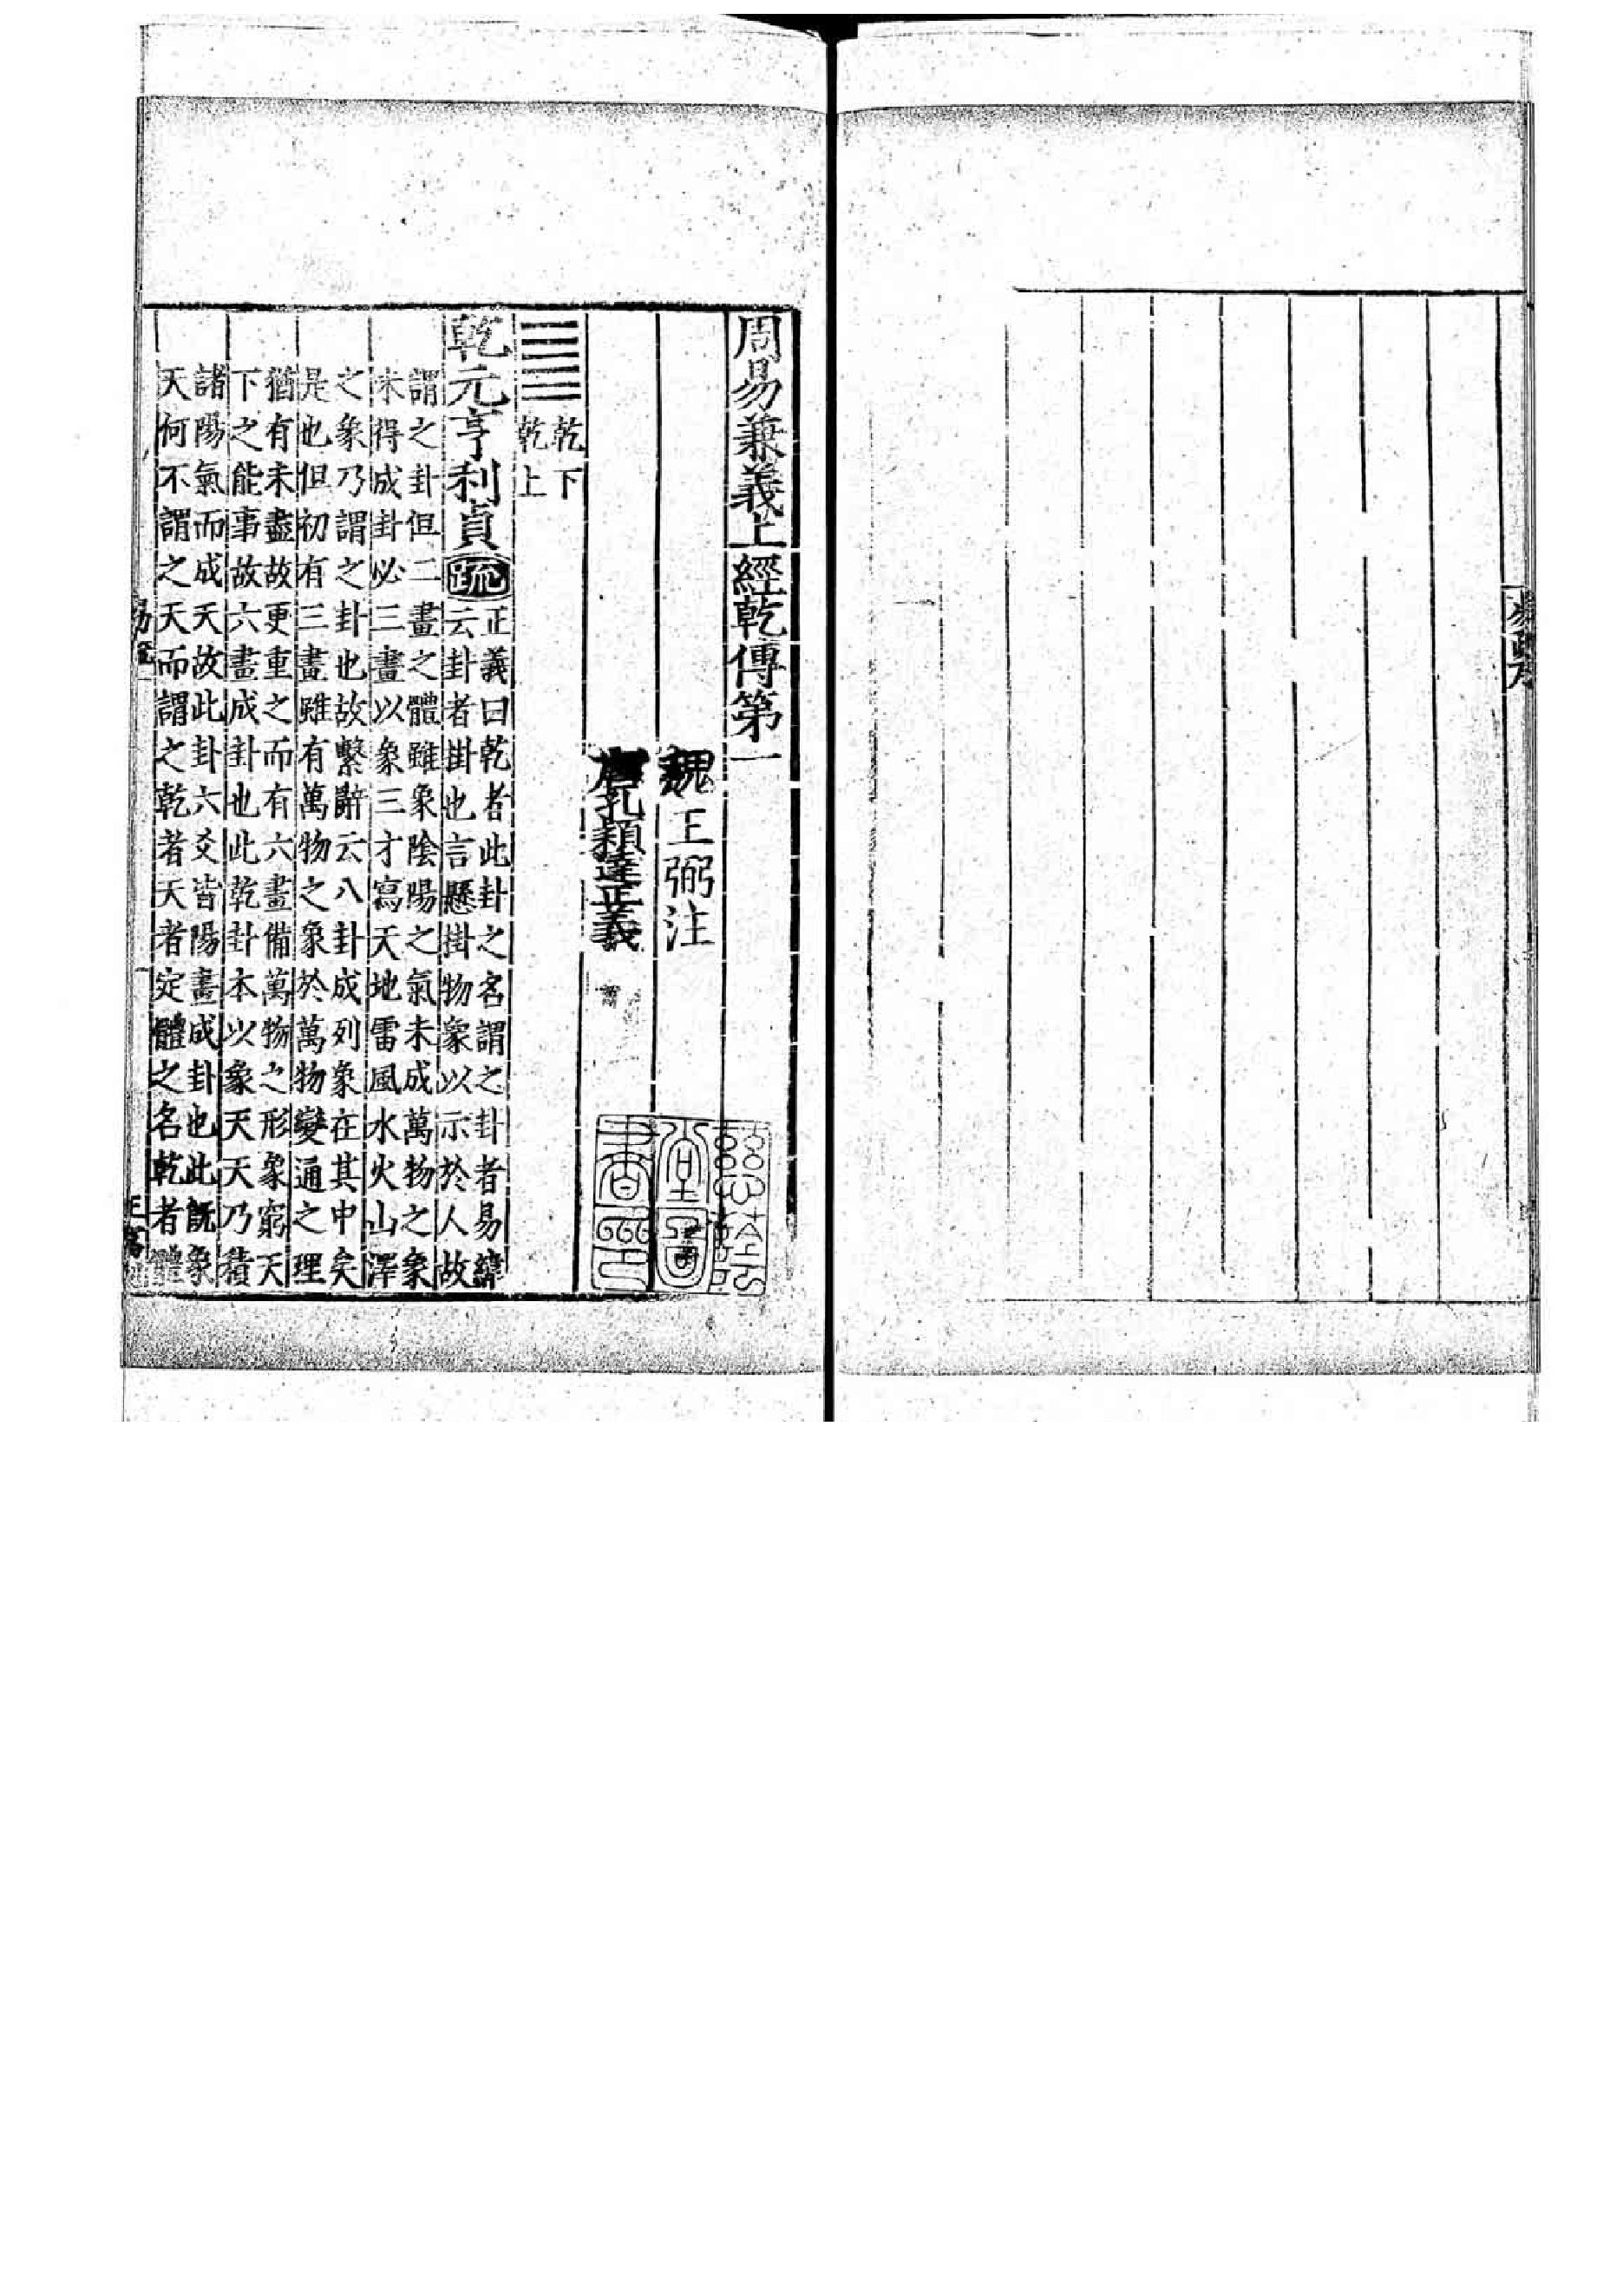 周易兼義上經乾傳第一
魏王弼注
唐孔穎達正義
乾下
乾上
乾元亨利貞疏
正義曰乾者此卦之名謂之卦者易緯
云卦者掛也言懸掛物象以示於人故
謂之卦但二畫之體雖象陰陽之氣未成萬物之象
未得成卦必三畫以象三才寫天地雷風水火山澤
之象乃謂之卦也故繫辭云八卦成列象在其中矣
是也但初有三畫雖有萬物之象於萬物變通之理
猶有未盡故更重之而有六畫備萬物之形象窮天
下之能事故六畫成卦也此乾卦本以象天天乃積
諸陽氣而成天故此卦六爻皆陽畫成卦也此既象
天何不謂之天而謂之乾者天者定體之名乾者體